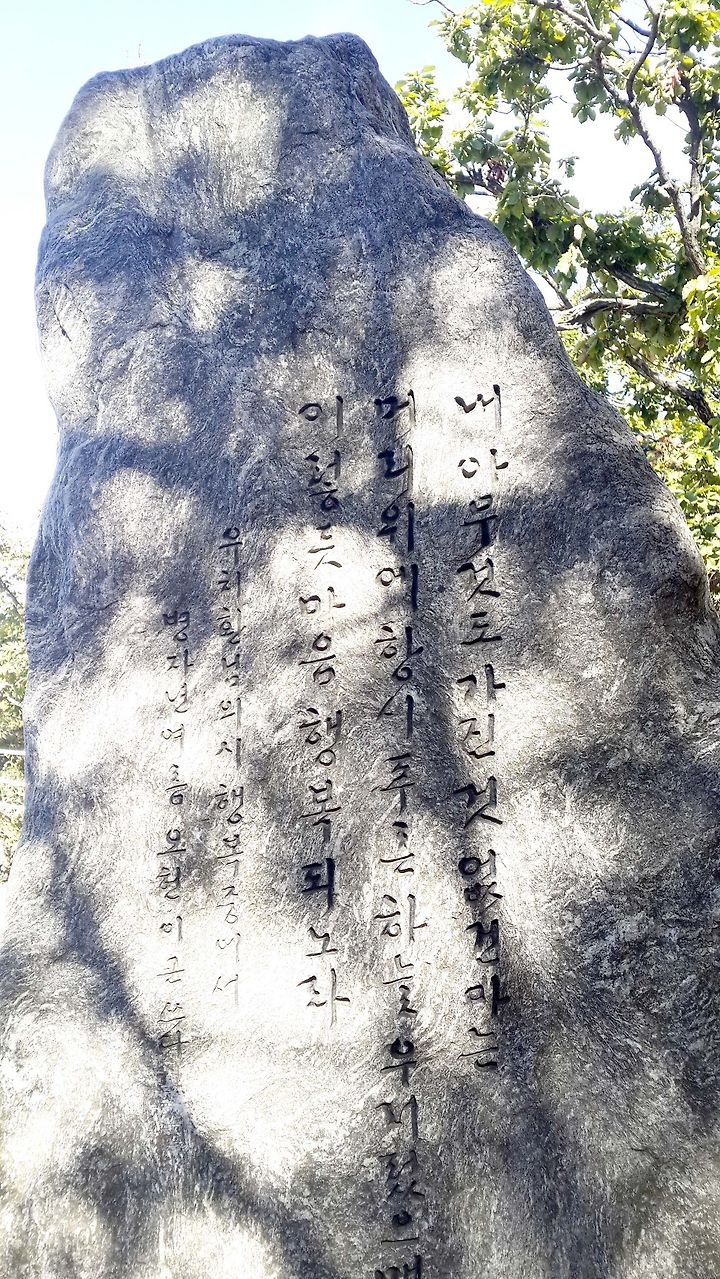 내 아무것도 가진 것 없건마는
머리 위에 항시 푸른 하늘 우러렀으매
이렇듯 마음 행복되노라
유치환님의 시 행복중에서
병자년 여름 쓰다